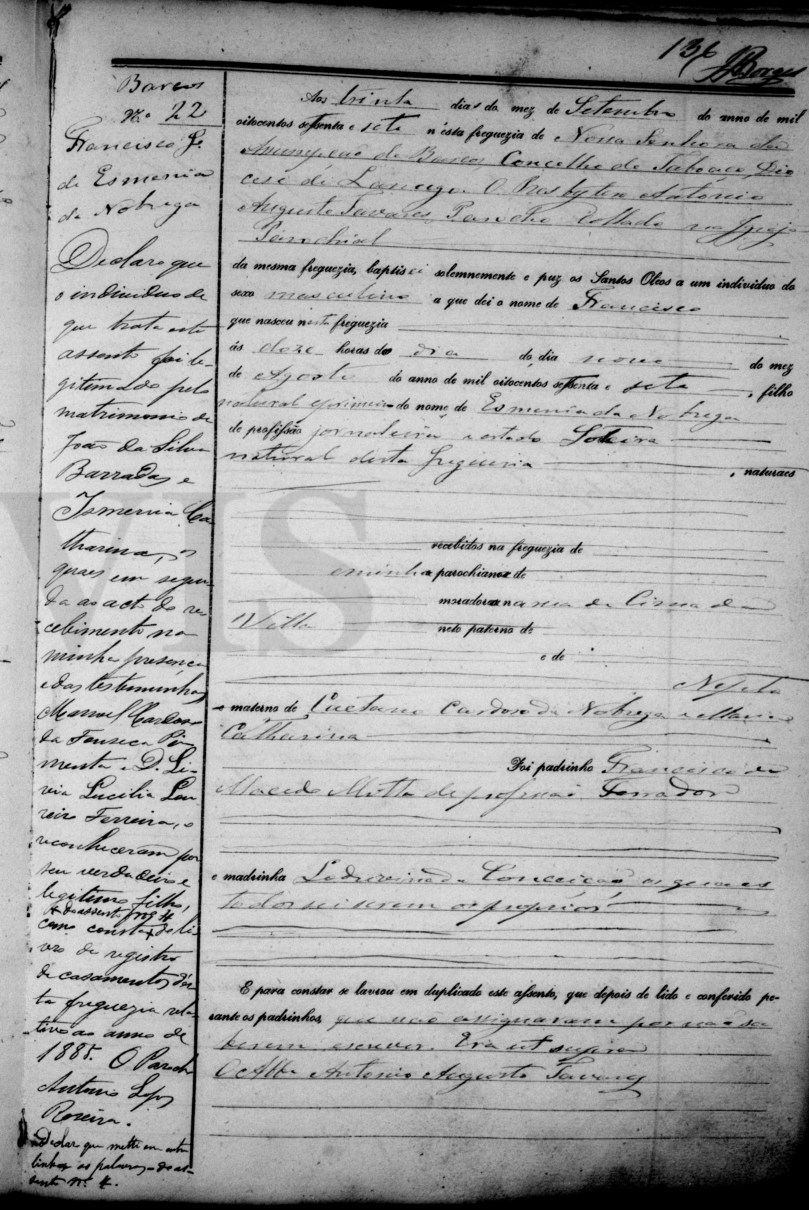 136 Borges
Barcos
N.o 22
Francisco f.
de Esmenia
da Nobrega
Declaro que
o individuo de
que trata este
assento foi le-
gitimado pelo
matrimonio de
João da Silva
Barradas e
Ismenia Ca-
tharina, os
quaes em segui-
da ao acto do re-
cebimento na
minha presença
e das testemunhas
Manoel Cardoso
da Fonseca Pi-
menta e D. Li-
via Lucilia Lou-
reiro Ferreira, o
reconheceram por
seu verdadeiro e
legitimo filho,
do assento nº 4
como consta do li-
vro de registro
de casamentos d'es-
ta freguezia rela-
tivo ao anno de
1885. O Parocho
Antonio
Roseira.
Declaro que metti em entre
linhas as palavras - do as-
sento nº 4.
Aos trinta dias do mez de Setembro do anno de mil
oitocentos setenta e sete n'esta freguezia de Nossa Senhora da
Assumpção de Barcos, Concelho de Taboaço, Dio
cese de Lamego. O Presbytero António
Augusto Tavares, Parocho Collado na Igreja
Parochial
da mesma freguezia, baptisei solemnemente e puz os Santos Oleos a um individuo do
sexo masculino a que dei o nome de Francisco
que nasceu nesta freguezia
ás doze horas do dia do dia nove do mez
de Agosto do anno de mil oitocentos setenta e sete, filho
natural e primeiro do nome de Esmenia da Nobrega
de profissão jornaleira e estado Solteira
natural desta freguezia, naturaes
recebidos na freguezia de
e minha parochiana de
moradora na rua de Cima da
Villa neto paterno de
e de
Neto
materno de Caetano Cardoso da Nobrega e Maria
Catharina
Foi padrinho Francisco de
Macedo Motta de profissão Ferrador
e madrinha da Conceição os quaes
todos serem os proprios
E para constar se lavrou em duplicado este assento, que depois de lido e conferido pe-
rante os padrinhos, que não assignaram por não sa
berem escrever. Era ut supra
O Abb.e Antonio Augusto Tavares